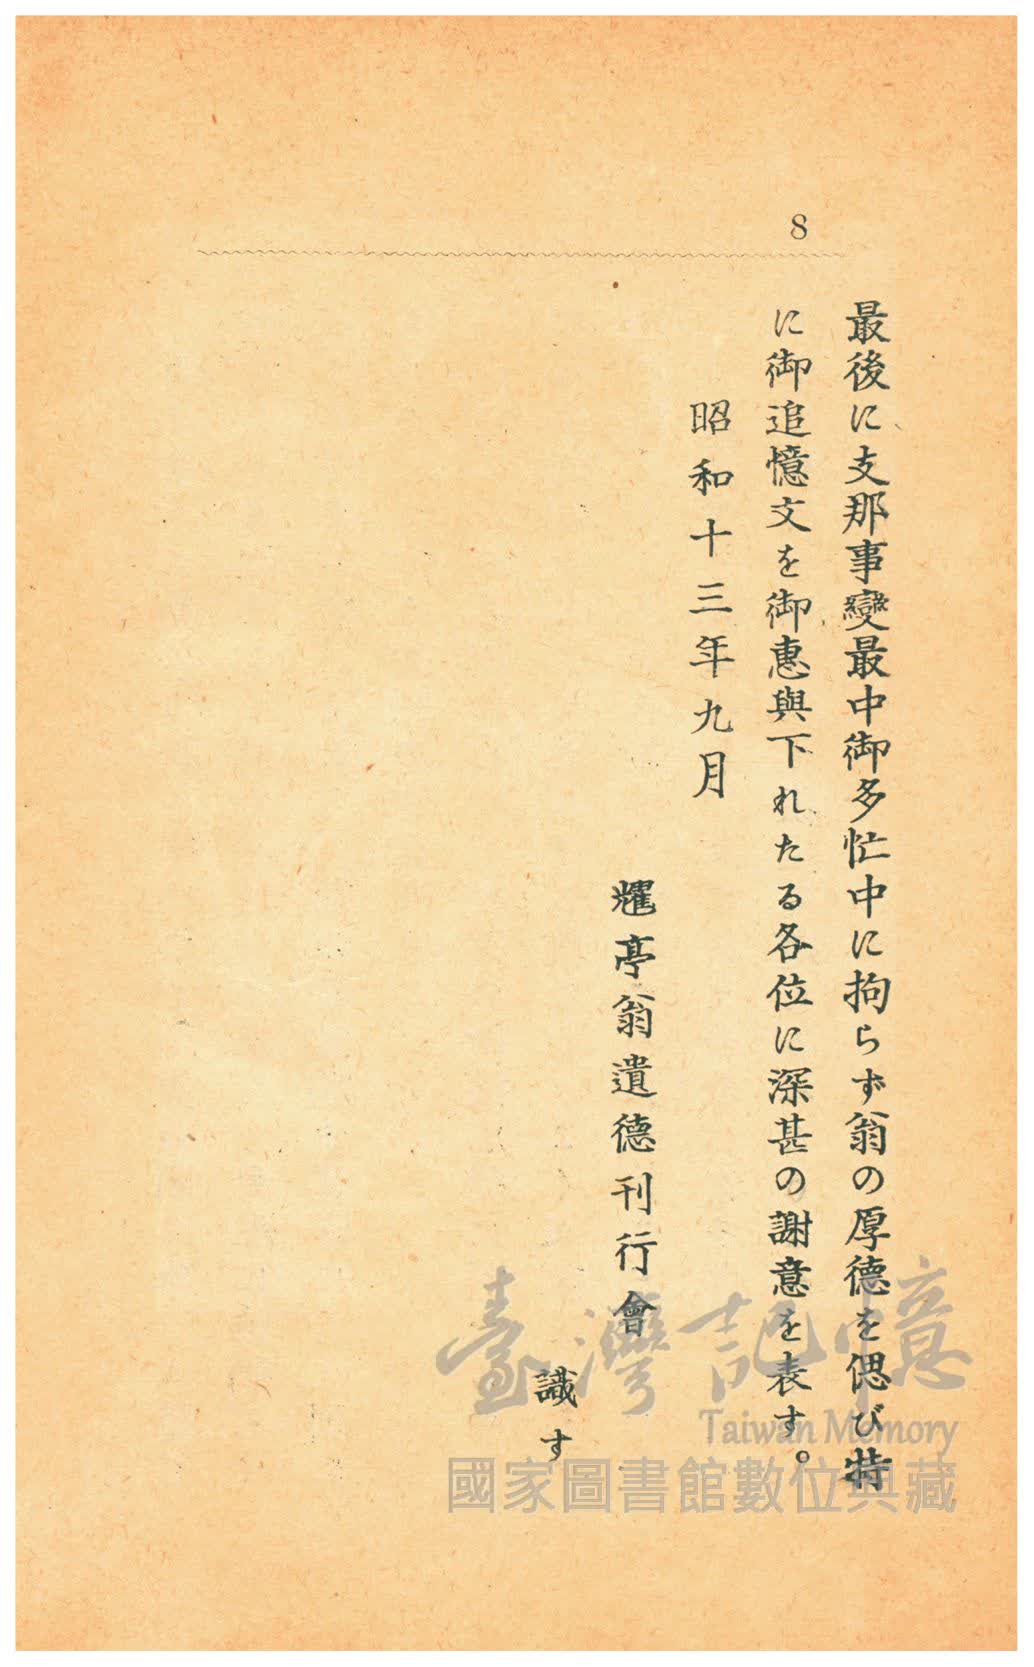 8
最後に支那事變最中御多忙中に拘らず翁の厚德を偲び特
に御追憶文を御惠與下れたる各位に深甚の謝意を表す。
昭和十三年九月
耀亭翁遺德刊行會
識す
臺灣記憶
Taiwan Memory
國家圖書館數位典藏